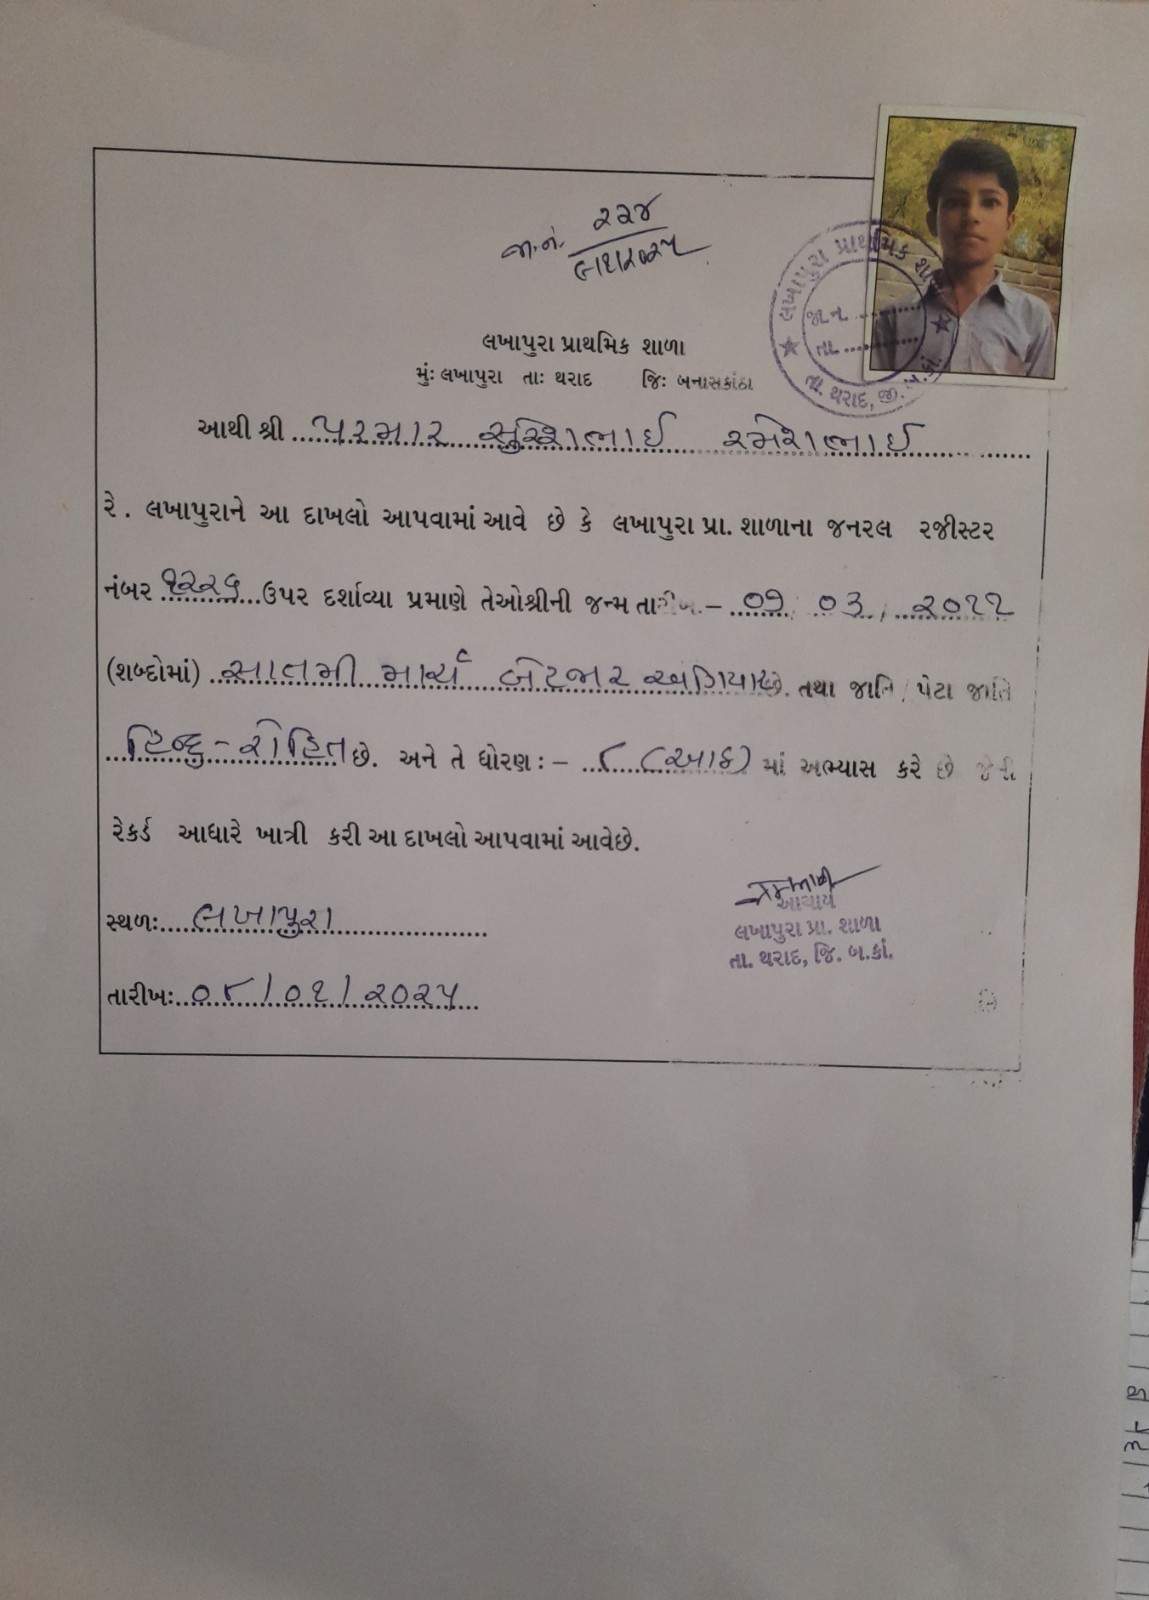 જા.નં. ૨૨૪
૨૦૨૫
લખાપુરા પ્રાથમિક શાળા
મું: લખાપુરા તા: થરાદ જિ: બનાસકાંઠા
લખાપુરા પ્રાથમિક શાળા
જા.ન. ..........
તા. ..........
તા. થરાદ, જી. બ.કાં.
આથી શ્રી પરમાર રમેશભાઈ
રે. લખાપુરાને આ દાખલો આપવામાં આવે છે કે લખાપુરા પ્રા. શાળાના જનરલ રજીસ્ટર
નંબર ૧૨૨૬ ઉપર દર્શાવ્યા પ્રમાણે તેઓશ્રીની જન્મ તારીખ.- ૦૭, ૦૩, ૨૦૧૧
(શબ્દોમાં) સાતમી માર્ચ બેહજાર અગિયાર છે. તથા જાતિ / પેટા જાતિ
હિન્દુ - રોહિત છે. અને તે ધોરણ : - ૮ (આઠ) માં અભ્યાસ કરે છે જેની
રેકર્ડ આધારે ખાત્રી કરી આ દાખલો આપવામાં આવેછે.
આચાર્ય
સ્થળ: લખાપુરા
લખાપુરા પ્રા. શાળા
તા. થરાદ, જિ. બ.કાં.
તારીખ: ૦૮/૦૧/૨૦૨૫